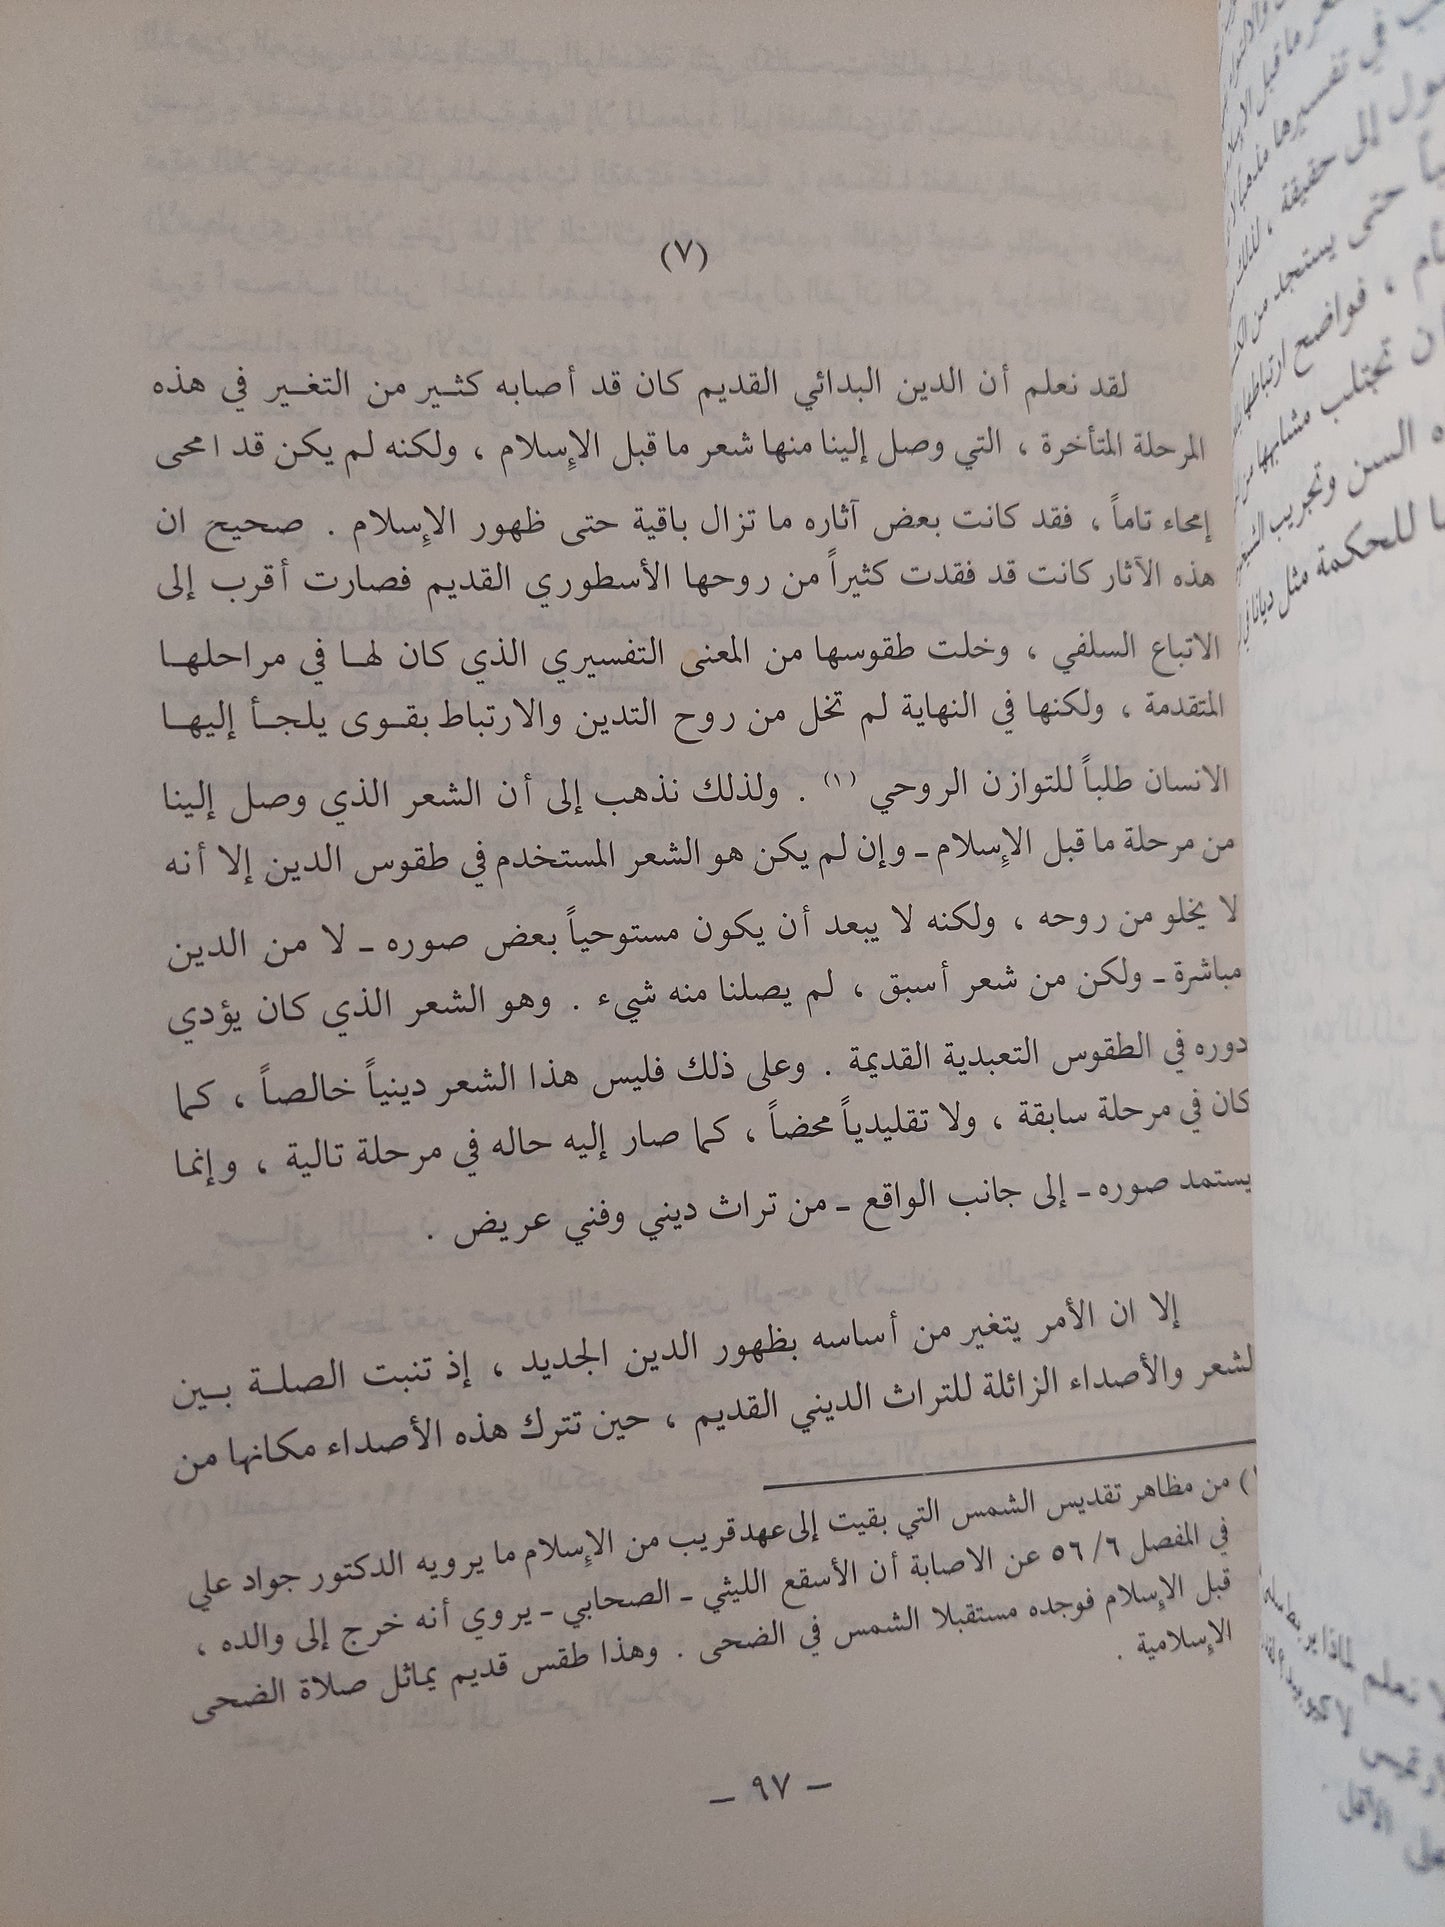 (٧)
لقد نعلم أن الدين البدائي القديم كان قد أصابه كثير من التغير في هذه
المرحلة المتأخرة ، التي وصل إلينا منها شعر ما قبل الإسلام ، ولكنه لم يكن قد امحى
إمحاء تاماً ، فقد كانت بعض آثاره ما تزال باقية حتى ظهور الإسلام . صحيح ان
هذه الآثار كانت قد فقدت كثيراً من روحها الأسطوري القديم فصارت أقرب إلى
الاتباع السلفي ، وخلت طقوسها من المعنى التفسيري الذي كان لها في مراحلها
المتقدمة ، ولكنها في النهاية لم تخل من روح التدين والارتباط بقوى يلجأ إليها
الانسان طلباً للتوازن الروحي (١) . ولذلك نذهب إلى أن الشعر الذي وصل إلينا
من مرحلة ما قبل الإسلام ـ وإن لم يكن هو الشعر المستخدم في طقوس الدين إلا أنه
لا يخلو من روحه ، ولكنه لا يبعد أن يكون مستوحياً بعض صوره ـ لا من الدين
مباشرة ـ ولكن من شعر أسبق ، لم يصلنا منه شيء . وهو الشعر الذي كان يؤدي
دوره في الطقوس التعبدية القديمة . وعلى ذلك فليس هذا الشعر دينياً خالصاً ، كما
كان في مرحلة سابقة ، ولا تقليدياً محضاً ، كما صار إليه حاله في مرحلة تالية ، وإنما
يستمد صوره ـ إلى جانب الواقع ـ من تراث ديني وفني عريض .
إلا ان الأمر يتغير من أساسه بظهور الدين الجديد ، إذ تنبت الصلة بين
لشعر والأصداء الزائلة للتراث الديني القديم ، حين تترك هذه الأصداء مكانها من
) من مظاهر تقديس الشمس التي بقيت إلى عهد قريب من الإسلام ما يرويه الدكتور جواد علي
في المفصل ٦/ ٥٦ عن الاصابة أن الأسقع الليثي ـ الصحابي ـ يروي أنه خرج إلى والده ،
قبل الإسلام فوجده مستقبلا الشمس في الضحى . وهذا طقس قديم يماثل صلاة الضحى
الإسلامية .
ـ ٩٧ ـ